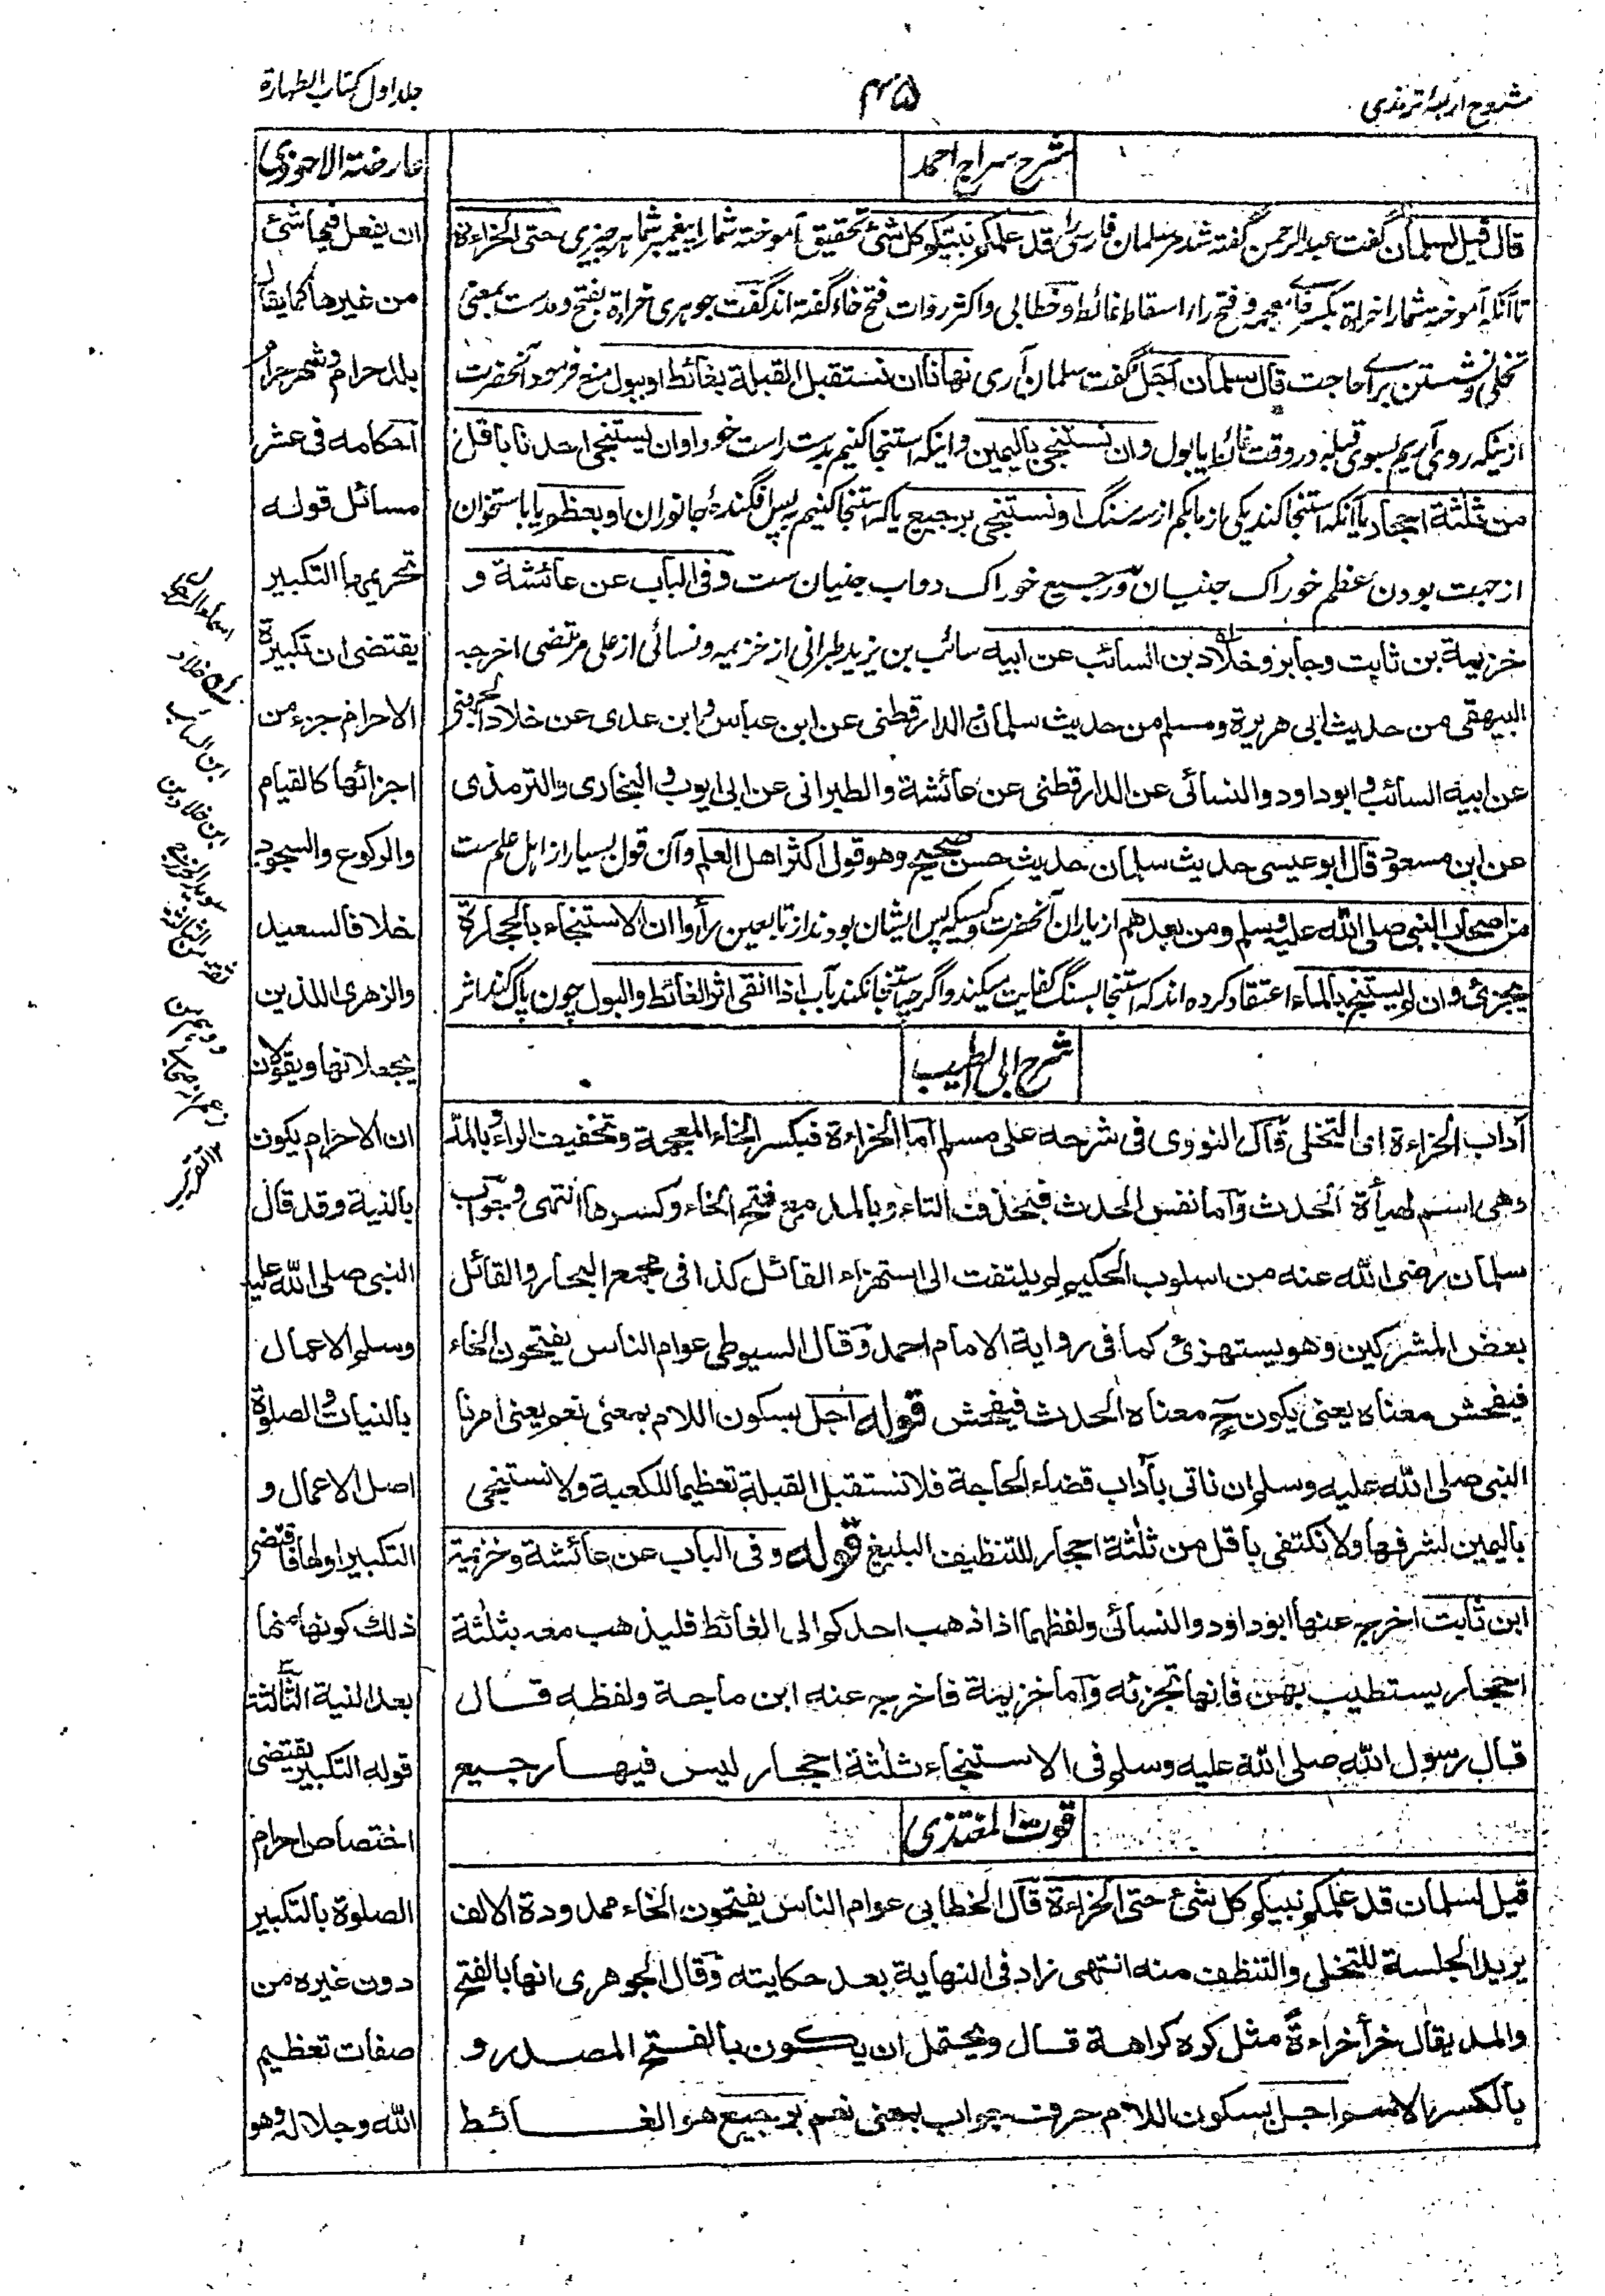 شروح اربعۂ ترمذی
۴۵
جلد اول کتاب الطهارة
شرح سراج احمد
قال قیل لسلمان گفت عبدالرحمن گفته شد مر سلمان فارسی را قد علمکم نبیکم کل شئ تحقیق آموخته شما را پیغمبر شما هر چیزی حتی الخراءة
تا آنکه آموخت شما را خراءة بکسر خای معجمه وفتح راء اسقاط غائط وخطابی واکثر روات فتح خاء گفته اند گفت جوهری خراءة بفتح ومدست بمعنی
تخلی ونشستن برای حاجت قال سلمان اجل گفت سلمان آری نهانا ان نستقبل القبلة بغائط او ببول منع فرمود آنحضرت
ازینکه روی آریم بسوی قبله در وقت غائط یا بول وان نستنجی بالیمین واینکه استنجا کنیم بدست راست خود او ان یستنجی احدنا باقل
من ثلثة احجار یا آنکه استنجا کند یکی از ما بکم از سه سنگ او نستنجی برجیع یا که استنجا کنیم بپس افگندهٔ جانوران او بعظم یا باستخوان
از جهت بودن عظم خوراک جنیان ورجیع خوراک دواب جنیان ست وفی الباب عن عائشة و
خزیمة بن ثابت وجابر وخلاد بن السائب عن ابیه سائب بن یزید طبرانی از خزیمه ونسائی از علی مرتضی اخرجه
البیهقی من حدیث ابی هریرة ومسلم من حدیث سلمان والدارقطنی عن ابن عباس وابن عدی عن خلاد
عن ابیه السائب وابو داود والنسائی عن الدارقطنی عن عائشة والطبرانی عن ابی ایوب والبخاری والترمذی
عن ابن مسعود قال ابو عیسی حدیث سلمان حدیث حسن صحیح وهو قول اکثر اهل العلم وآن قول بسیار از اهل علم ست
من اصحاب النبی صلی الله علیه وسلم ومن بعدهم از یاران آنحضرت وکسیکه پس ایشان بودند از تابعین رأوا ان الاستنجاء بالحجارة
یجزئ وان لم یستنج بالماء اعتقاد کرده اند که استنجا بسنگ کفایت میکند واگرچه استنجا نکند بآب اذا انقی اثر الغائط والبول چون پاک کند اثر
شرح ابی الطیب
آداب الخراءة ای التخلی قال النووی فی شرحه علی مسلم اما الخراءة فبکسر الخاء المعجمة وتخفیف الراء وبالمد
وهی اسم لهیأة الحدث واما نفس الحدث فبحذف التاء وبالمد مع فتح الخاء وکسرها انتهی وجواب
سلمان رضی الله عنه من اسلوب الحکیم لم یلتفت الی استهزاء القائل کذا فی مجمع البحار والقائل
بعض المشرکین وهو یستهزئ کما فی روایة الامام احمد وقال السیوطی عوام الناس یفتحون الخاء
فیفحش معناه یعنی یکون ح معناه الحدث فیفحش قوله اجل بسکون اللام بمعنی نعم یعنی امرنا
النبی صلی الله علیه وسلم ان ناتی بآداب قضاء الحاجة فلا نستقبل القبلة تعظیما للکعبة ولا نستنجی
بالیمین لشرفها ولا نکتفی باقل من ثلثة احجار للتنظیف البلیغ قوله وفی الباب عن عائشة وخزیمة
ابن ثابت اخرجه عنها ابو داود والنسائی ولفظهما اذا ذهب احدکم الی الغائط فلیذهب معه بثلثة
احجار یستطیب بهن فانها تجزئه واما خزیمة فاخرجه عنه ابن ماجة ولفظه قال
قال رسول الله صلی الله علیه وسلم فی الاستنجاء ثلثة احجار لیس فیها رجیع
قوت المغتذی
قیل لسلمان قد علمکم نبیکم کل شئ حتی الخراءة قال الخطابی عوام الناس یفتحون الخاء ممدودة الالف
یرید الجلسة للتخلی والتنظف منه انتهی زاد فی النهایة بعد حکایته وقال الجوهری انها بالفتح
والمد یقال خرأ خراءة مثل کره کراهة قال ویحتمل ان یکون بالفتح المصدر و
بالکسر الاسم اجل بسکون اللام حرف جواب بمعنی نعم برجیع هو الغائط
عارضة الاحوذی
ان یفعل فیها شئ
من غیرها کما یقال
بلد حرام وشهر حرام
احکامه فی عشر
مسائل قوله
تحریمها التکبیر
یقتضی ان تکبیرة
الاحرام جزء من
اجزائها کالقیام
والرکوع والسجود
خلافا لسعید
والزهری اللذین
یجعلانها ویقولان
ان الاحرام یکون
بالنیة وقد قال
النبی صلی الله علیه
وسلم الاعمال
بالنیات والصلوة
اصل الاعمال و
التکبیر اولها فاقتضی
ذلک کونها منها
بعد النیة الثالثة
قوله التکبیر یقتضی
اختصاص احرام
الصلوة بالتکبیر
دون غیره من
صفات تعظیم
الله وجلاله وهو
ابن السائب
ابن خلاد بن
۱۲ تقریب